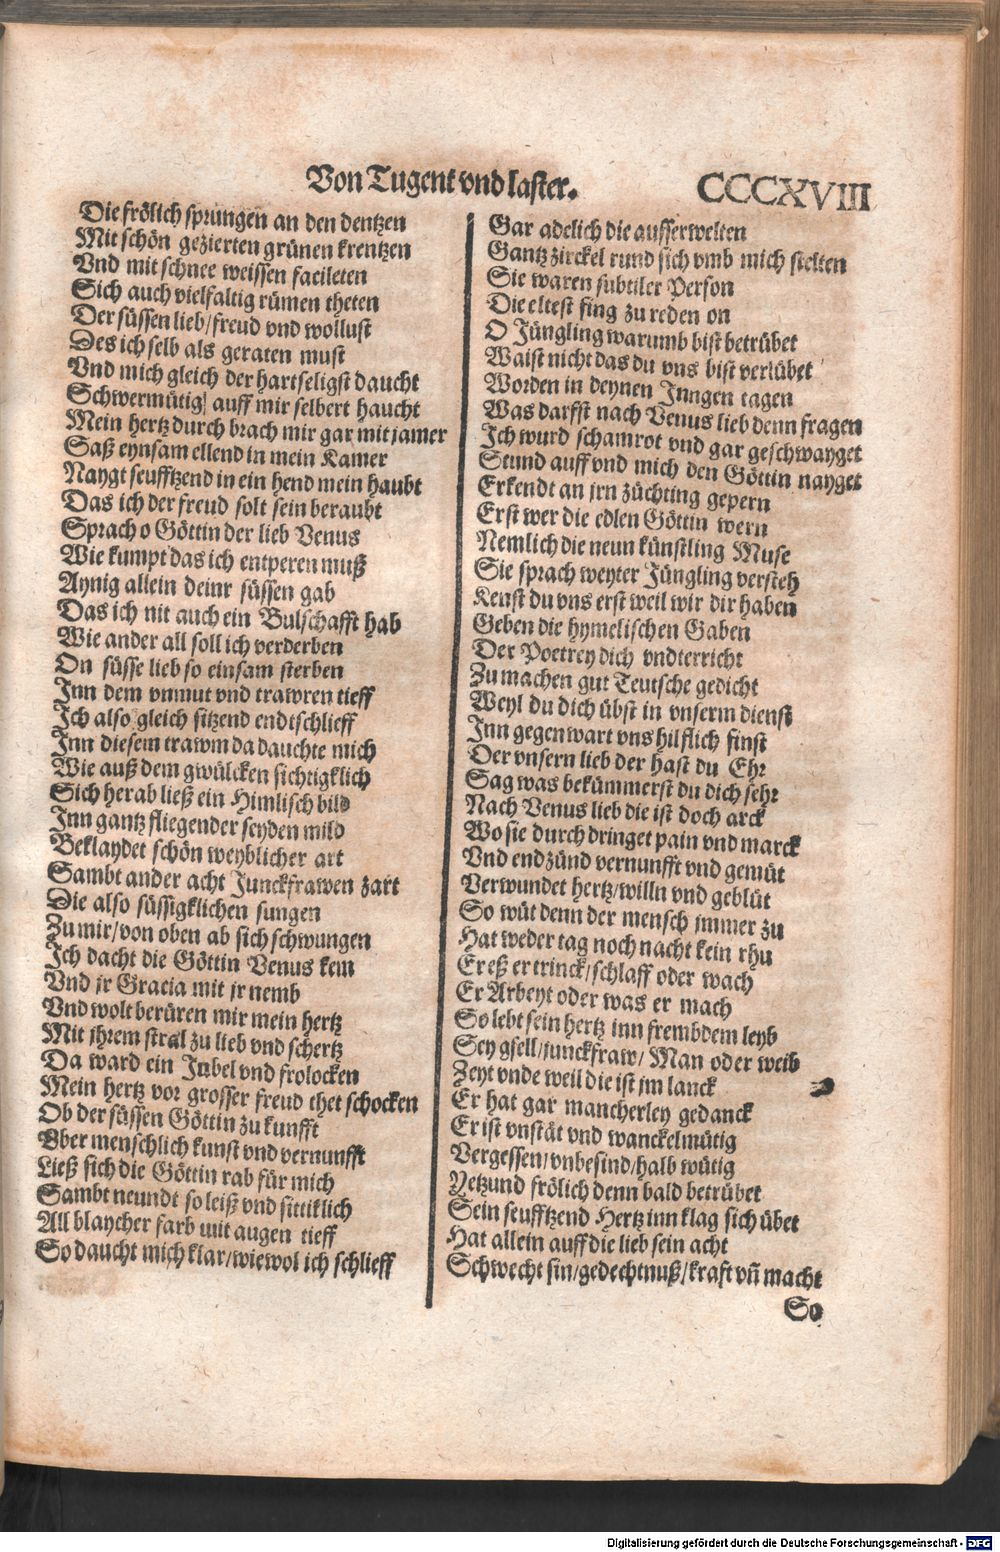 Von Tugent vnd laster.
CCCXVIII
Die frölich sprungen an den dentzen
Mit schön gezierten grünen krentzen
Vnd mit schnee weissen facileten
Sich auch vielfaltig rümen theten
Der süssen lieb/freud vnd wollust
Des ich selb als geraten must
Vnd mich gleich der hartseligst daucht
Schwermütig auff mir selbert haucht
Mein hertz durch brach mir gar mit jamer
Saß eynsam ellend in mein Kamer
Naygt seufftzend in ein hend mein haubt
Das ich der freud solt sein beraubt
Sprach o Göttin der lieb Venus
Wie kumpt das ich entperen muß
Aynig allein deinr süssen gab
Das ich nit auch ein Bulschafft hab
Wie ander all soll ich verderben
On süsse lieb so einsam sterben
Inn dem vnmut vnd trawren tieff
Ich also gleich sitzend endtschlieff
Inn diesem trawm da dauchte mich
Wie auß dem gwülcken sichtigklich
Sich herab ließ ein Himlisch bild
Inn gantz fliegender seyden mild
Beklaydet schön weyblicher art
Sambt ander acht Junckfrawen zart
Die also süssigklichen sungen
Zu mir/von oben ab sich schwungen
Ich dacht die Göttin Venus kem
Vnd jr Gracia mit jr nemb
Vnd wolt berüren mir mein hertz
Mit jhrem stral zu lieb vnd schertz
Da ward ein Jubel vnd frolocken
Mein hertz vor grosser freud thet schocken
Ob der süssen Göttin zu kunfft
Vber menschlich kunst vnd vernunfft
Ließ sich die Göttin rab für mich
Sambt neundt so leiß vnd sittiklich
All blaycher farb mit augen tieff
So daucht mich klar/wiewol ich schlieff
Gar adelich die ausserwelten
Gantz zirckel rund sich vmb mich stelten
Sie waren subtiler Person
Die eltest fing zu reden on
O Jüngling warumb bist betrübet
Waist nicht das du vns bist verlübet
Worden in deynen Jungen tagen
Was darfst nach Venus lieb denn fragen
Ich wurd schamrot vnd gar geschwayget
Stund auff vnd mich den Göttin nayget
Erkendt an jrn züchting gepern
Erst wer die edlen Göttin wern
Nemlich die neun künstling Muse
Sie sprach weyter Jüngling versteh
Kenst du vns erst weil wir dir haben
Geben die hymelischen Gaben
Der Poetrey dich vndterricht
Zu machen gut Teutsche gedicht
Weyl du dich übst in vnserm dienst
Inn gegenwart vns hilflich finst
Der vnsern lieb der hast du Ehr
Sag was bekümmerst du dich sehr
Nach Venus lieb die ist doch arck
Wo sie durch dringet pain vnd marck
Vnd endzünd vernunfft vnd gemüt
Verwundet hertz/willn vnd geblüt
So wüt denn der mensch jmmer zu
Hat weder tag noch nacht kein rhu
Er eß er trinck/schlaff oder wach
Er Arbeyt oder was er mach
So lebt sein hertz inn frembdem leyb
Sey gsell/junckfraw/Man oder weib
Zeyt vnde weil die ist jm lanck
Er hat gar mancherley gedanck
Er ist vnstät vnd wanckelmütig
Vergessen/vnbesind/halb wütig
Yetzund frölich denn bald betrübet
Sein seufftzend Hertz inn klag sich übet
Hat allein auff die lieb sein acht
Schwecht sin/gedechtnuß/kraft vñ macht
So
Digitalisierung gefördert durch die Deutsche Forschungsgemeinschaft - DFG